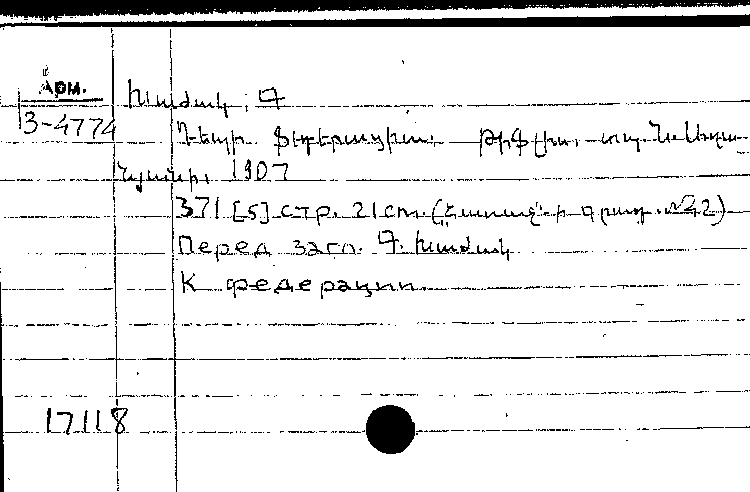 Арм.
3-4774
Խաժակ, Գ
Դեպի ֆեդերացիա. Թիֆլիս, տպ. Ն. Աղա-
նյանի, 1907
371 [5] стр. 21 cm. (Հառաջ-ի գրադ. №2)
Перед загл. Գ. Խաժակ
К федерации.
17118